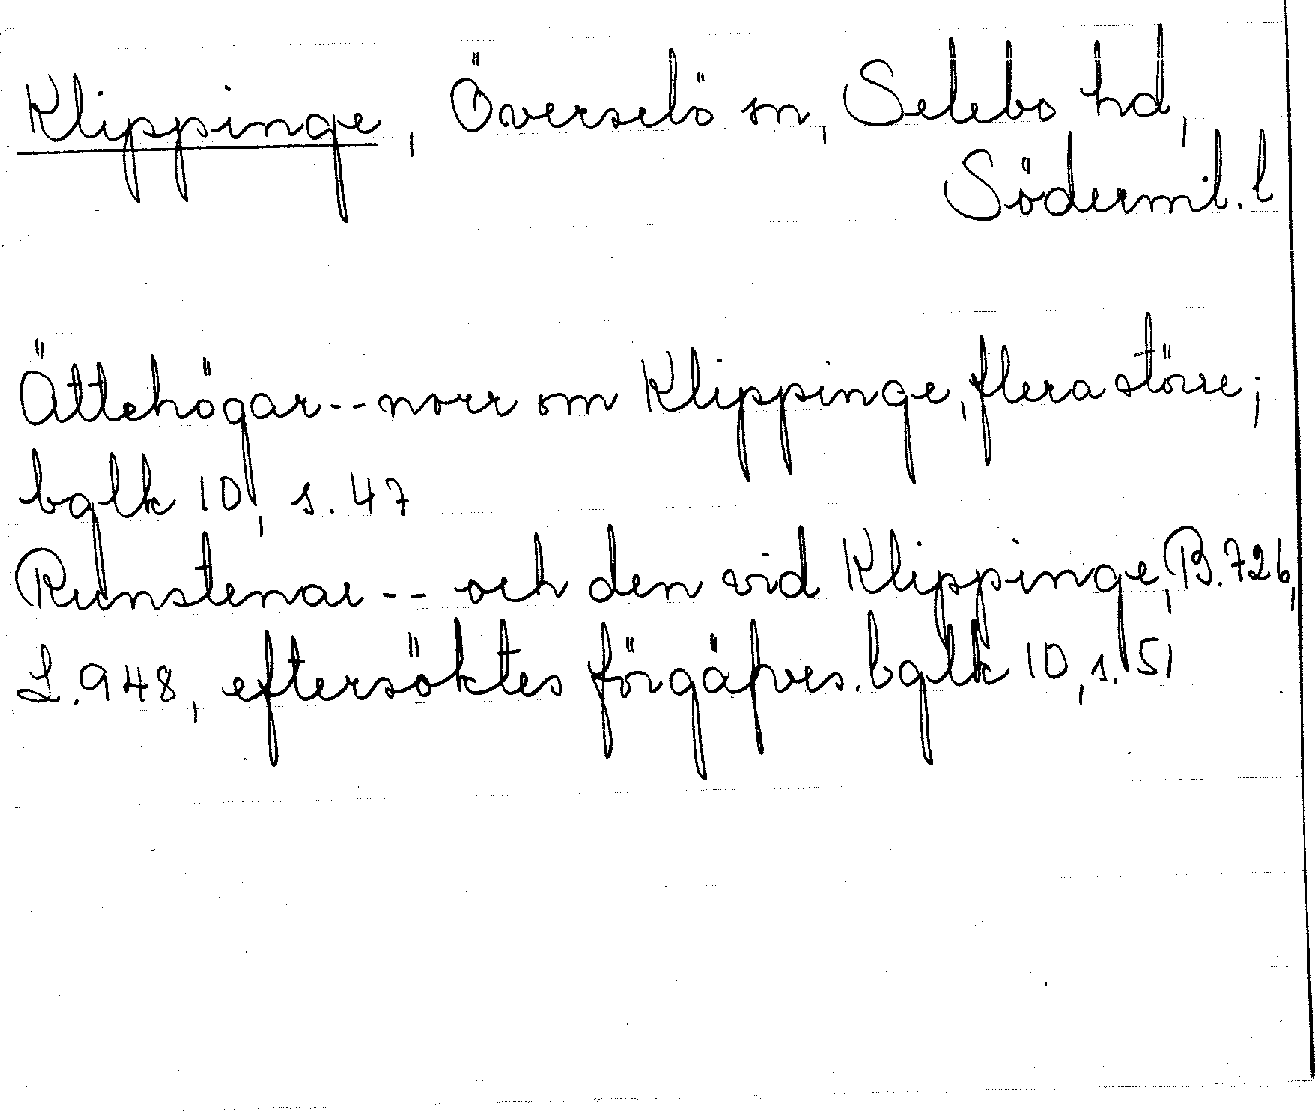 Klippinge, Överselö sn, Selebo hd,
Söderml. l
Ättehögar -- norr om Klippinge, flera större;
bglk 10, s. 47
Runstenar -- och den vid Klippinge, B. 726,
L. 948, eftersöktes förgäfves. bglk 10, s. 51